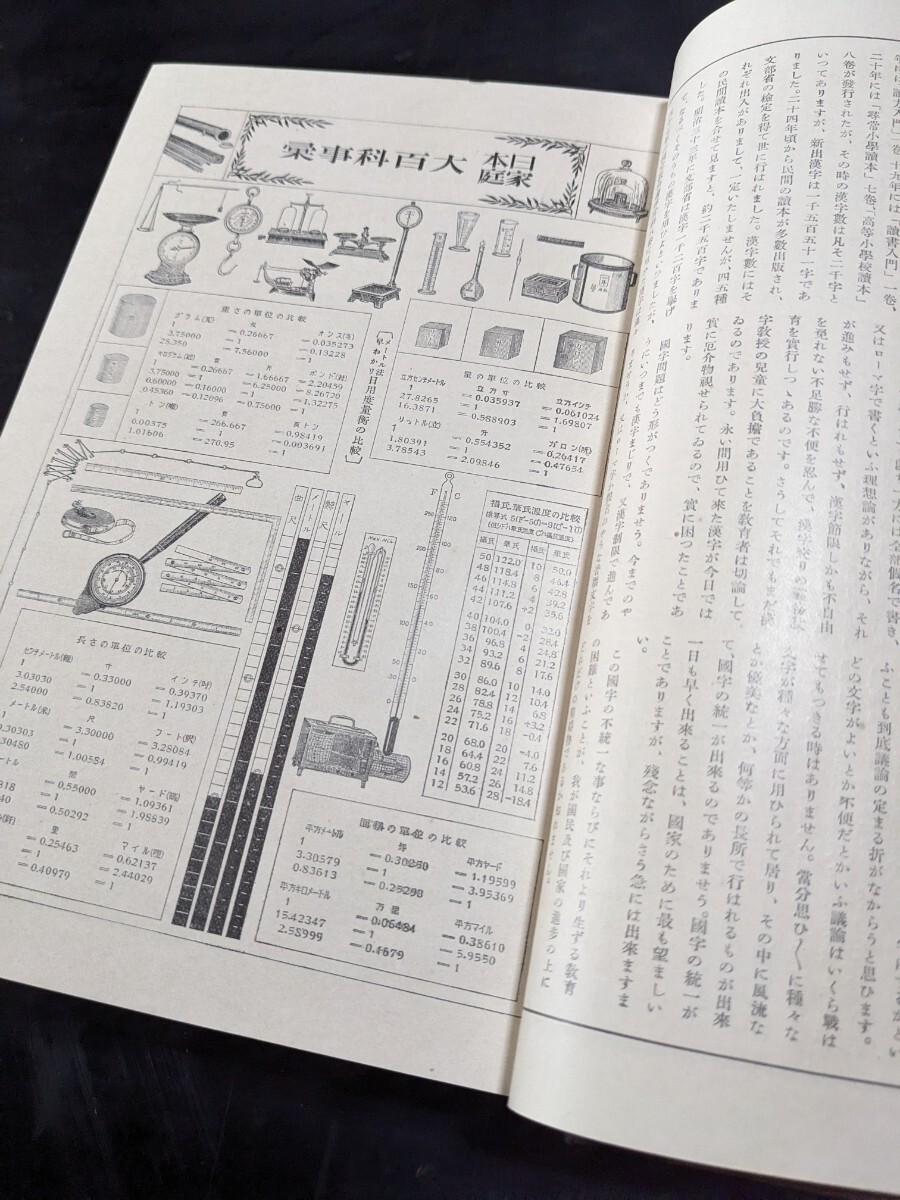 日本家庭 大百科事彙
メートル法
早わかり 日用度量衡の比較
重さの單位の比較
グラム(瓦) 匁 オンス(オ)
1 =0.26667 =0.035273
3.75000 =1 =0.13228
28.350 =7.56000 =1
キログラム(瓩) 貫 斤 ポンド(封)
1 =0.26667 =1.66667 =2.20459
3.75000 =1 =6.25000 =8.26720
0.60000 =0.16000 =1 =1.32275
0.45360 =0.12096 =0.75600 =1
トン(噸) 貫 長トン
1 =266.667 =0.98419
0.00375 =1 =0.003691
1.01606 =270.95 =1
量の單位の比較
立方センチメートル 立方寸 立方インチ
1 =0.035937 =0.061024
27.8265 =1 =1.69807
16.3871 =0.588903 =1
リットル(立) 升 ガロン
1 =0.554352 =0.26417
1.80391 =1 =0.47654
3.78543 =2.09846 =1
曲尺
メートル
鯨尺
ヤール
MAX. MIN.
F C
攝氏華氏溫度の比較
攝氏 華氏 攝氏 華氏
50 122.0 10 50.0
48 118.4 8 46.4
46 114.8 6 42.8
44 111.2 4 39.2
42 107.6 +2 35.6
40 104.0 0 32.0
38 100.4 -2 28.4
36 96.8 4 24.8
34 93.2 6 21.2
32 89.6 8 17.6
30 86.0 10 14.0
28 82.4 12 10.4
26 78.8 14 6.8
24 75.2 16 +3.2
22 71.6 18 -0.4
20 68.0 20 -4.0
18 64.4 22 7.6
16 60.8 24 11.2
14 57.2 26 14.8
12 53.6 28 -18.4
長さの單位の比較
センチメートル(糎) 寸 インチ(吋)
1 =0.33000 =0.39370
3.03030 =1 =1.19303
2.54000 =0.83820 =1
メートル(米) 尺 フート(呎)
=3.30000 =3.28084
0.30303 =1 =0.99419
30480 =1.00584 =1
間 ヤード(碼)
=0.55000 =1.09361
818 =1 =1.98839
440 =0.50292 =1
里 マイル(哩)
=0.25463 =0.62137
=1 =2.44029
=0.40979 =1
面積の單位の比較
平方メートル 坪 平方ヤード
1 =0.30250 =1.19599
3.30579 =1 =3.95369
0.83613 =0.25293 =1
平方キロメートル 方里 平方マイル
1 =0.06484 =0.38610
15.42347 =1 =5.9550
2.58999 =0.1679 =1
二十年には「尋常小學讀本」七卷、「高等小學校讀本」
八卷が發行されたが、その時の漢字數は凡そ二千字と
いつてありますが、新出漢字は一千五百五十一字であ
りました。二十四年頃から民間の讀本が多數出版され、
文部省の檢定を得て世に行はれました。漢字數にはそ
れぞれ出入がありまして、一定いたしませんが、四五種
の民間讀本を合せて見ますと、約二千五百字でありま
又はローマ字で書くといふ理想論がありながら、それ
が進みもせず、行はれもせず、漢字節限しかも不自由
を免れない不足勝な不便を忍んで、漢字交りの
育を實行しつゝあるのです。さうしてそれでもまだ漢
字敎授の兒童に大負擔であることを敎育者は切論して
ゐるのであります。永い間用ひて來た漢字が今日では
實に厄介物視せられてゐるので、實に困つたことであ
ります。
國字問題はどう形がつくでありませう。今までのや
うにいつまでも漢字まじりで、又漢字制限で進んであ
ふことも到底議論の定まる折がなからうと思ひます。
どの文字がよいとか不便だとかいふ議論はいくら戰は
せてもつきる時はありません。當分思ひ〱に種々な
文字が種々な方面に用ひられて居り、その中に風流な
とか優美なとか、何等かの長所で行はれるものが出來
て、國字の統一が出來るのでありませう。國字の統一が
一日も早く出來ることは、國家のために最も望ましい
ことでありますが、殘念ながらさう急には出來ますま
い。
この國字の不統一な事ならびにそれより生ずる敎育
の困難といふことが、我が國民及び國家の進步の上に